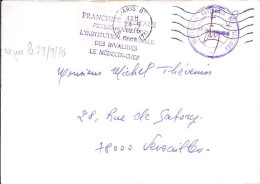 PARIS
FRANCHISE POSTALE
L'INSTITUTION NATIONALE
DES INVALIDES
LE MÉDECIN-CHEF
reçue le 29/9/76
Monsieur Michel Thévenin
28, Rue de Satory
78000 Versailles.